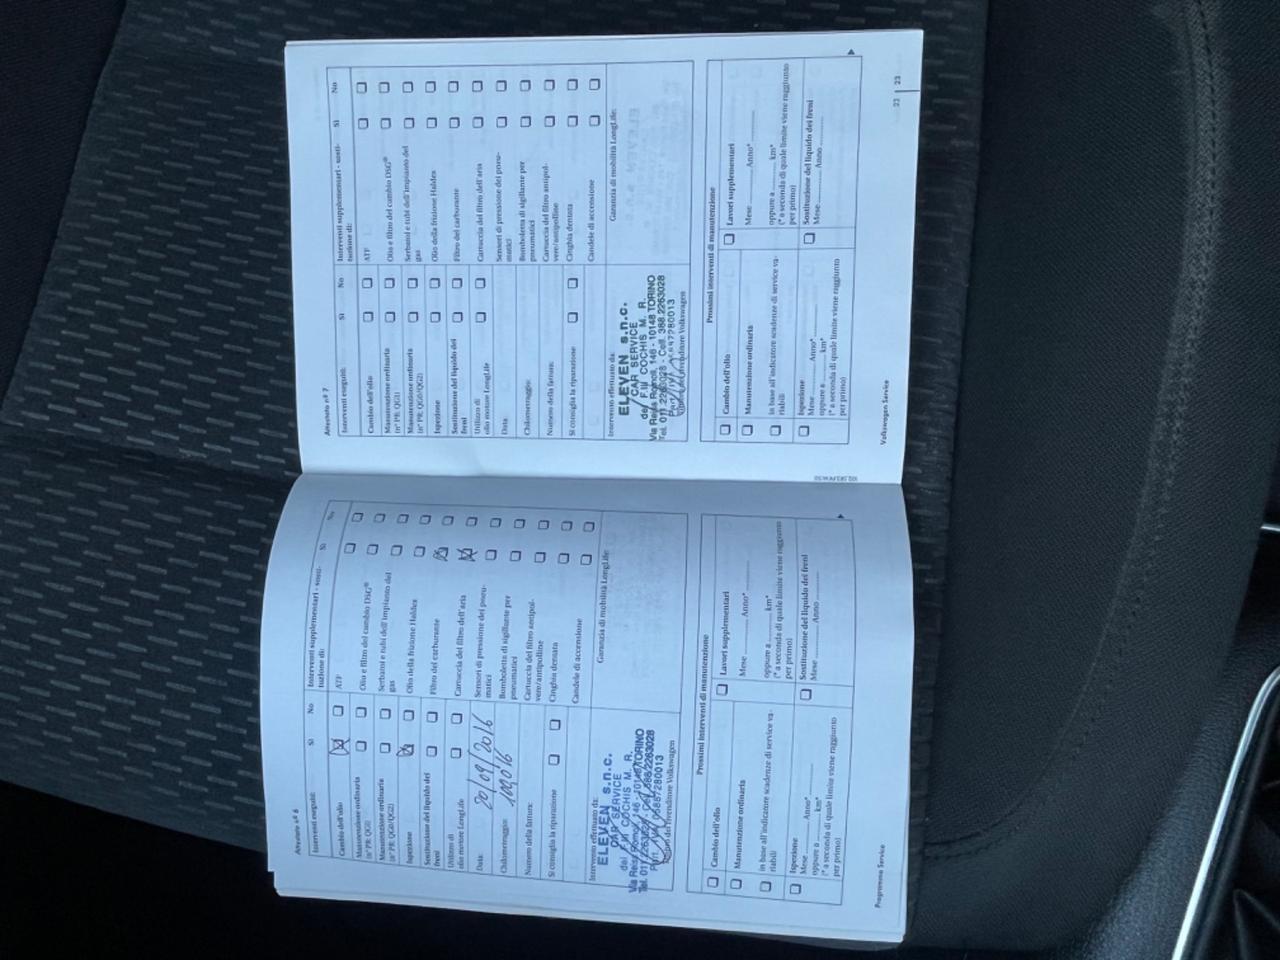 Attestato nº 6
Interventi eseguiti:
Sì
No
Cambio dell'olio
Manutenzione ordinaria
(nº PR: QG1)
Manutenzione ordinaria
(nº PR: QG0/QG2)
Ispezione
Sostituzione del liquido dei
freni
Utilizzo di
olio motore LongLife
Data:
20/09/2016
Chilometraggio:
109016
Numero della fattura:
Si consiglia la riparazione
Interventi supplementari - sosti-
tuzione di:
Sì
No
ATF
Olio e filtro del cambio DSG®
Serbatoi e tubi dell'impianto del
gas
Olio della frizione Haldex
Filtro del carburante
Cartuccia del filtro dell'aria
Sensori di pressione dei pneu-
matici
Bomboletta di sigillante per
pneumatici
Cartuccia del filtro antipol-
vere/antipolline
Cinghia dentata
Candele di accensione
Intervento effettuato da:
ELEVEN s.n.c.
CAR SERVICE
dei F.lli COCHIS M. R.
Via Reiss Romoli, 146 - 10148 TORINO
Tel. 011.2263028 - Cell. 388.2263028
Garanzia di mobilità LongLife:
Prossimi interventi di manutenzione
Cambio dell'olio
Manutenzione ordinaria
in base all'indicatore scadenze di service va-
riabili
Ispezione
Mese Anno*
oppure a km*
(* a seconda di quale limite viene raggiunto
per primo)
Lavori supplementari
Mese Anno*
oppure a km*
(* a seconda di quale limite viene raggiunto
per primo)
Sostituzione del liquido dei freni
Mese Anno
Programma Service
Attestato nº 7
Interventi eseguiti:
Sì
No
Cambio dell'olio
Manutenzione ordinaria
(nº PR: QG1)
Manutenzione ordinaria
(nº PR: QG0/QG2)
Ispezione
Sostituzione del liquido dei
freni
Utilizzo di
olio motore LongLife
Data:
Chilometraggio:
Numero della fattura:
Si consiglia la riparazione
Interventi supplementari - sosti-
tuzione di:
Sì
No
ATF
Olio e filtro del cambio DSG®
Serbatoi e tubi dell'impianto del
gas
Olio della frizione Haldex
Filtro del carburante
Cartuccia del filtro dell'aria
Sensori di pressione dei pneu-
matici
Bomboletta di sigillante per
pneumatici
Cartuccia del filtro antipol-
vere/antipolline
Cinghia dentata
Candele di accensione
Intervento effettuato da:
ELEVEN s.n.c.
CAR SERVICE
dei F.lli COCHIS M. R.
Via Reiss Romoli, 146 - 10148 TORINO
Tel. 011.2263028 - Cell. 388.2263028
Garanzia di mobilità LongLife:
Prossimi interventi di manutenzione
Cambio dell'olio
Manutenzione ordinaria
in base all'indicatore scadenze di service va-
riabili
Ispezione
Mese Anno*
oppure a km*
(* a seconda di quale limite viene raggiunto
per primo)
Lavori supplementari
Mese Anno*
oppure a km*
(* a seconda di quale limite viene raggiunto
per primo)
Sostituzione del liquido dei freni
Mese Anno
Volkswagen Service
23
23